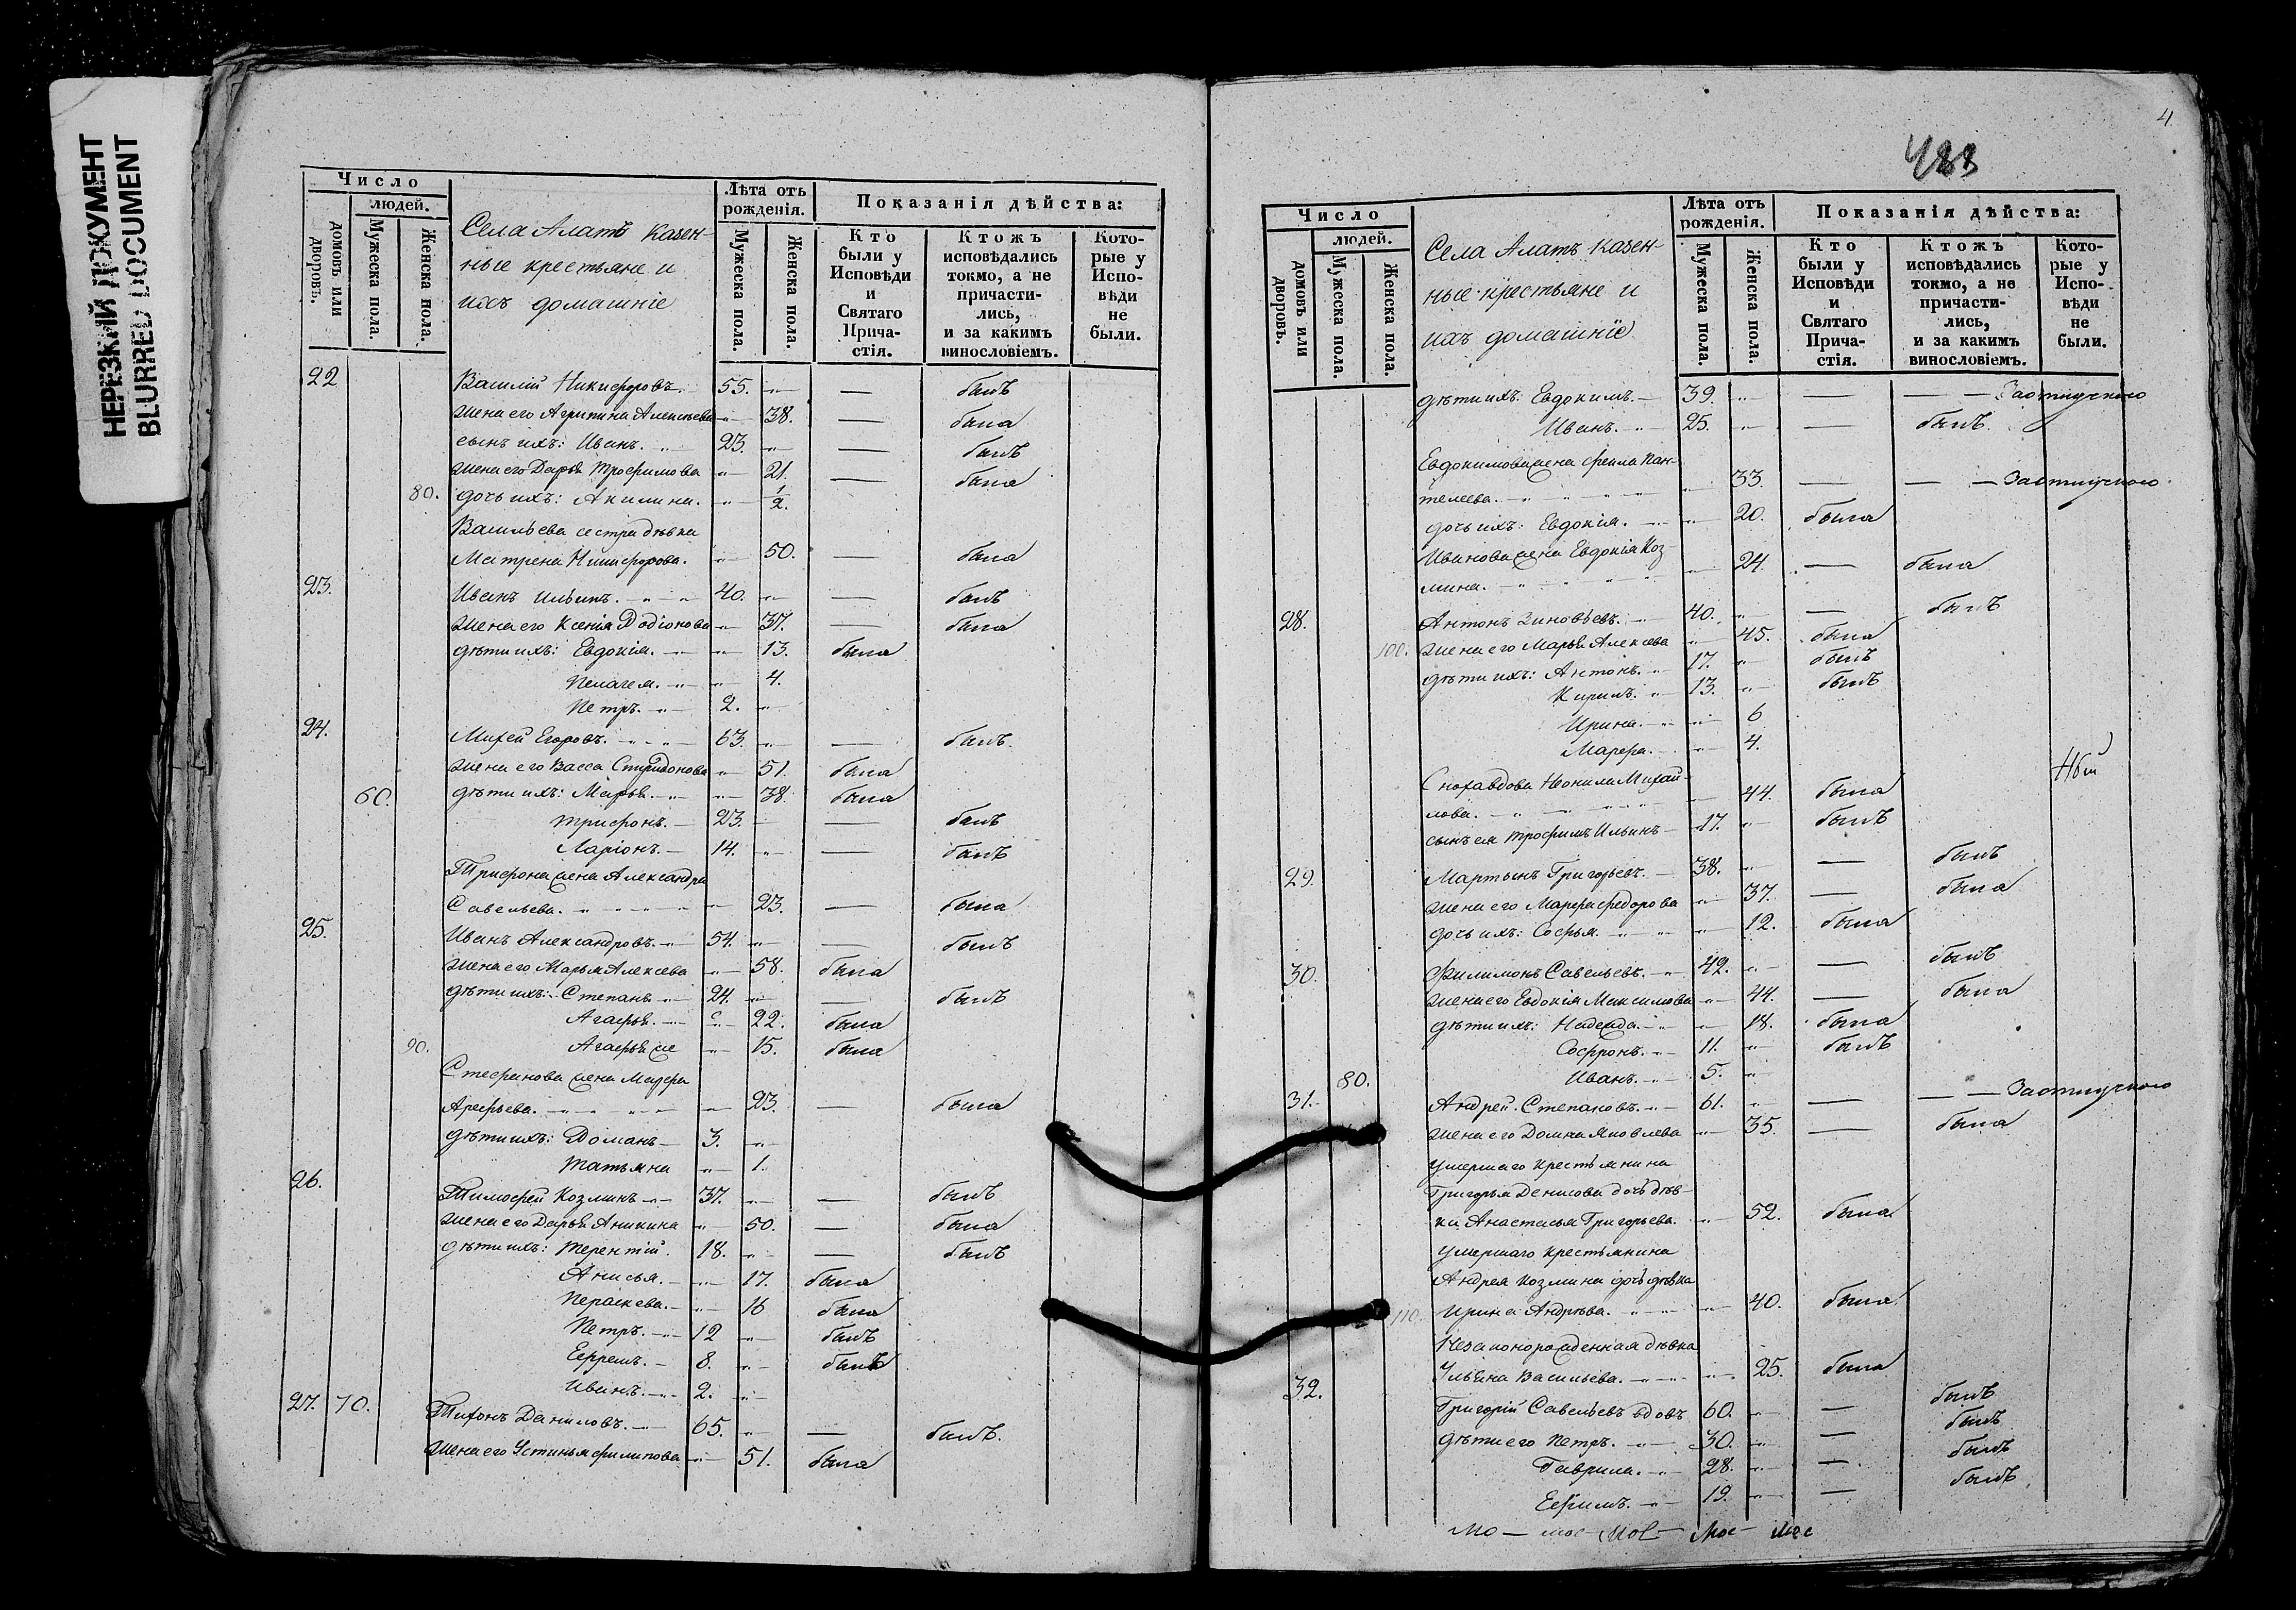 НЕРЕЗКИЙ ДОКУМЕНТ
BLURRED DOCUMENT
Число
людей.
домовъ или дворовъ.
Мужеска пола.
Женска пола.
Села Алатъ казен-
ные крестьяне и
ихъ домашніе
Лѣта отъ рожденія.
Мужеска пола.
Женска пола.
Показанія дѣйства:
Кто были у Исповѣди и Святаго Прича-стія.
Ктожъ исповѣдались токмо, а не причасти-лись, и за какимъ винословіемъ.
Кото-рые у Испо-вѣди не были.
22 Василій Никифоровъ. 55. — былъ
жена его Агрипина Алексѣева 38. — была
сынъ ихъ: Иванъ. 23. — былъ
жена его Дарья Трофимова 21. — была
80. дочь ихъ: Акилина. 1/2.
Васильева сестра дѣвка
Матрена Никифорова. 50. — была
23. Иванъ Ильинъ. 40. — былъ
жена его Ксенія Родіонова 37. — была
дѣти ихъ: Евдокія. 13. была
Пелагея. 4.
Петръ. 2.
24. Михей Егоровъ. 63. — былъ.
жена его Васса Спиридонова 51. была
60. дѣти ихъ: Марья. 38. была
Трифонъ. 23. — былъ
Ларіонъ. 14. — былъ
Трифона жена Александра
Савельева. 23. — была
25. Иванъ Александровъ. 54. — былъ
жена его Марья Алексѣева 58. была
дѣти ихъ: Степанъ 24. — былъ
Агафья. 22. была
90. Агафья же 15. была
Стефанова жена Марфа
Арефьева. 23. — была
дѣти ихъ: Романъ 3.
Татьяна 1.
26. Тимофей Козминъ 37. — былъ
жена его Дарья Аникина 50. — была
дѣти ихъ: Терентій. 18. — былъ
Анисья. 17. была
Пераскева. 16 была
Петръ. 12 былъ
Ефремъ. 8. былъ
Иванъ. 2.
27. 70. Тихонъ Даниловъ. 65. — былъ.
жена его Устинья Филипова 51. была
4
483
Число
людей.
домовъ или дворовъ.
Мужеска пола.
Женска пола.
Села Алатъ казен-
ные крестьяне и
ихъ домашніе
Лѣта отъ рожденія.
Мужеска пола.
Женска пола.
Показанія дѣйства:
Кто были у Исповѣди и Святаго Прича-стія.
Ктожъ исповѣдались токмо, а не причасти-лись, и за какимъ винословіемъ.
Кото-рые у Испо-вѣди не были.
дѣти ихъ: Евдокимъ. 39. — — — За отлучкою
Иванъ. 25. — былъ.
Евдокимова жена Фекла Пан-
телеева. 33. — — — За отлучкою
дочь ихъ: Евдокія. 20. была
Иванова жена Евдокія Коз-
мина. 24. — была
28. Антонъ Зиновьевъ. 40. — былъ
100. жена его Марья Алексѣева 45. была
дѣти ихъ: Антонъ. 17. былъ
Кирилъ. 13. былъ
Ирина. 6
Марфа. 4.
Сноха вдова Неонила Михай-
лова. 44. была
сынъ ея Трофимъ Ильинъ 17. былъ
29. Мартынъ Григорьевъ. 38. — былъ
жена его Марфа Федорова 37. — была
дочь ихъ: Софья. 12. была
30. Филимонъ Савельевъ. 42. — былъ
жена его Евдокія Максимова 44. — была
дѣти ихъ: Надежда. 18. была
Софронъ. 11. былъ
80. Иванъ. 5.
31. Андрей Степановъ. 61. — — — За отлучкою
жена его Домна Яковлева 35. — была
умершаго крестьянина
Григорья Денисова дочь дѣв-
ка Анастасья Григорьева. 52. была
умершаго крестьянина
Андрея Козмина дочь дѣвка
110. Ирина Андрѣева. 40. была
Незаконорожденная дѣвка
Ульяна Васильева. 25. была
32. Григорій Савельевъ вдовъ 60. — былъ
дѣти его Петръ. 30. — былъ
Гаврила. 28. — былъ
Ефимъ. 19. — былъ